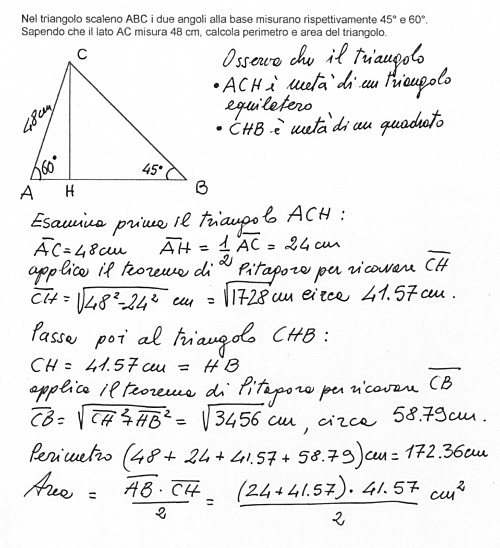 Nel triangolo scaleno ABC i due angoli alla base misurano rispettivamente 45° e 60°.
Sapendo che il lato AC misura 48 cm, calcola perimetro e area del triangolo.
C
48cm
60°
45°
A
H
B
Osserva che il triangolo
• ACH è metà di un triangolo
equilatero
• CHB è metà di un quadrato
Esamina prima il triangolo ACH :
A̅C̅ = 48cm A̅H̅ = 1/2 A̅C̅ = 24 cm
applica il teorema di Pitagora per ricavare C̅H̅
C̅H̅ = √(48²-24²) cm = √1728 cm circa 41.57 cm .
Passa poi al triangolo CHB :
CH = 41.57 cm = HB
applica il teorema di Pitagora per ricavare C̅B̅
C̅B̅ = √(C̅H̅²+H̅B̅²) = √3456 cm , circa 58.79 cm .
Perimetro (48 + 24 + 41.57 + 58.79) cm = 172.36 cm
Area = A̅B̅ · C̅H̅ / 2 = (24+41.57) · 41.57 / 2 cm²